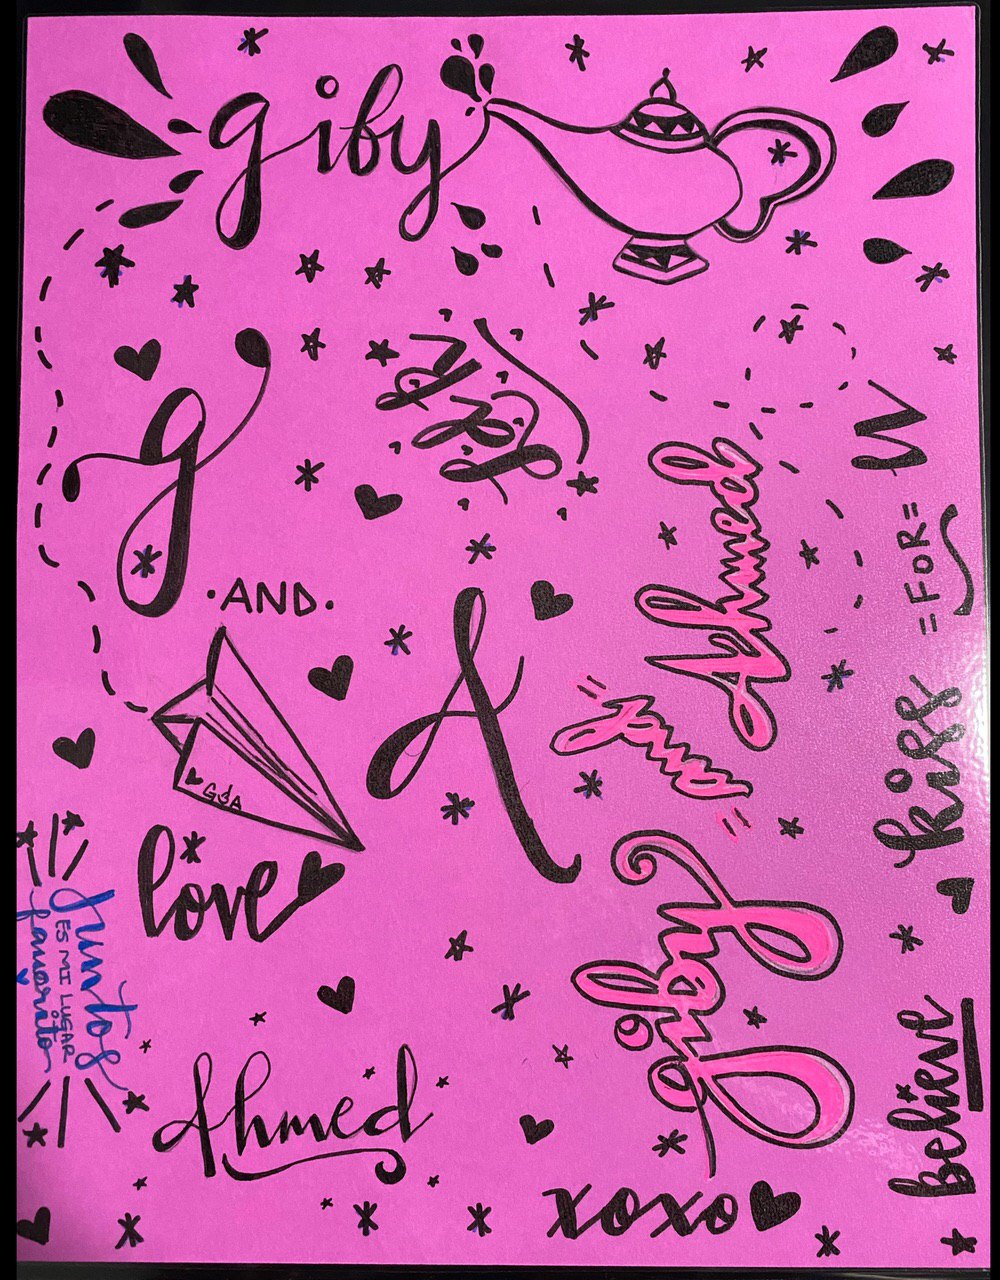 giby
g
·AND·
A
G&A
love
Juntos
ES MI LUGAR
favorito
Ahmed
xoxo
Giby
"and"
Ahmed
believe
kiss
=FOR=